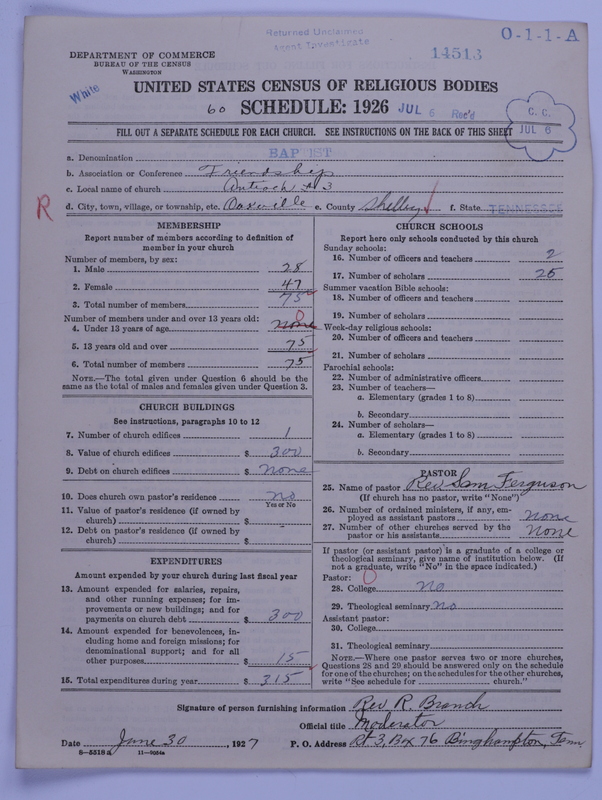 Returned Unclaimed
Agent Investigate
O-1-1-A
14513
DEPARTMENT OF COMMERCE
BUREAU OF THE CENSUS
WASHINGTON
White
UNITED STATES CENSUS OF RELIGIOUS BODIES
60 SCHEDULE: 1926 JUL 6 Rec'd
C. C.
JUL 6
FILL OUT A SEPARATE SCHEDULE FOR EACH CHURCH. SEE INSTRUCTIONS ON THE BACK OF THIS SHEET
a. Denomination BAPTIST
b. Association or Conference Friendship
c. Local name of church Antioch # 3
R
d. City, town, village, or township, etc. Doxville e. County Shelby f. State TENNESSEE
MEMBERSHIP
Report number of members according to definition of
member in your church
Number of members, by sex:
1. Male 28
2. Female 47
3. Total number of members 75
Number of members under and over 13 years old:
4. Under 13 years of age none 0
5. 13 years old and over 75
6. Total number of members 75
NOTE.—The total given under Question 6 should be the
same as the total of males and females given under Question 3.
CHURCH BUILDINGS
See instructions, paragraphs 10 to 12
7. Number of church edifices 1
8. Value of church edifices $ 300
9. Debt on church edifices $ none
10. Does church own pastor's residence no
Yes or No
11. Value of pastor's residence (if owned by
church) $
12. Debt on pastor's residence (if owned by
church) $ -
EXPENDITURES
Amount expended by your church during last fiscal year
13. Amount expended for salaries, repairs,
and other running expenses; for im-
provements or new buildings; and for
payments on church debt $ 300
14. Amount expended for benevolences, in-
cluding home and foreign missions; for
denominational support; and for all
other purposes $ 15
15. Total expenditures during year $ 315
CHURCH SCHOOLS
Report here only schools conducted by this church
Sunday schools:
16. Number of officers and teachers 2
17. Number of scholars 25
Summer vacation Bible schools:
18. Number of officers and teachers
19. Number of scholars
Week-day religious schools:
20. Number of officers and teachers
21. Number of scholars
Parochial schools:
22. Number of administrative officers
23. Number of teachers—
a. Elementary (grades 1 to 8)
b. Secondary
24. Number of scholars—
a. Elementary (grades 1 to 8)
b. Secondary
PASTOR
25. Name of pastor Rev Sam Ferguson
(If church has no pastor, write "None")
26. Number of ordained ministers, if any, em-
ployed as assistant pastors none
27. Number of other churches served by the
pastor or his assistants none
If pastor (or assistant pastor) is a graduate of a college or
theological seminary, give name of institution below. (If
not a graduate, write "No" in the space indicated.)
Pastor: 0
28. College no
29. Theological seminary no
Assistant pastor:
30. College
31. Theological seminary
NOTE.—Where one pastor serves two or more churches,
Questions 28 and 29 should be answered only on the schedule
for one of the churches; on the schedules for the other churches,
write "See schedule for church."
Signature of person furnishing information Rev. R. Branch
Official title Moderator
Date June 30, 1927 P. O. Address Rt 3, Box 76 Binghampton, Tenn
8-5518a 11-9034a